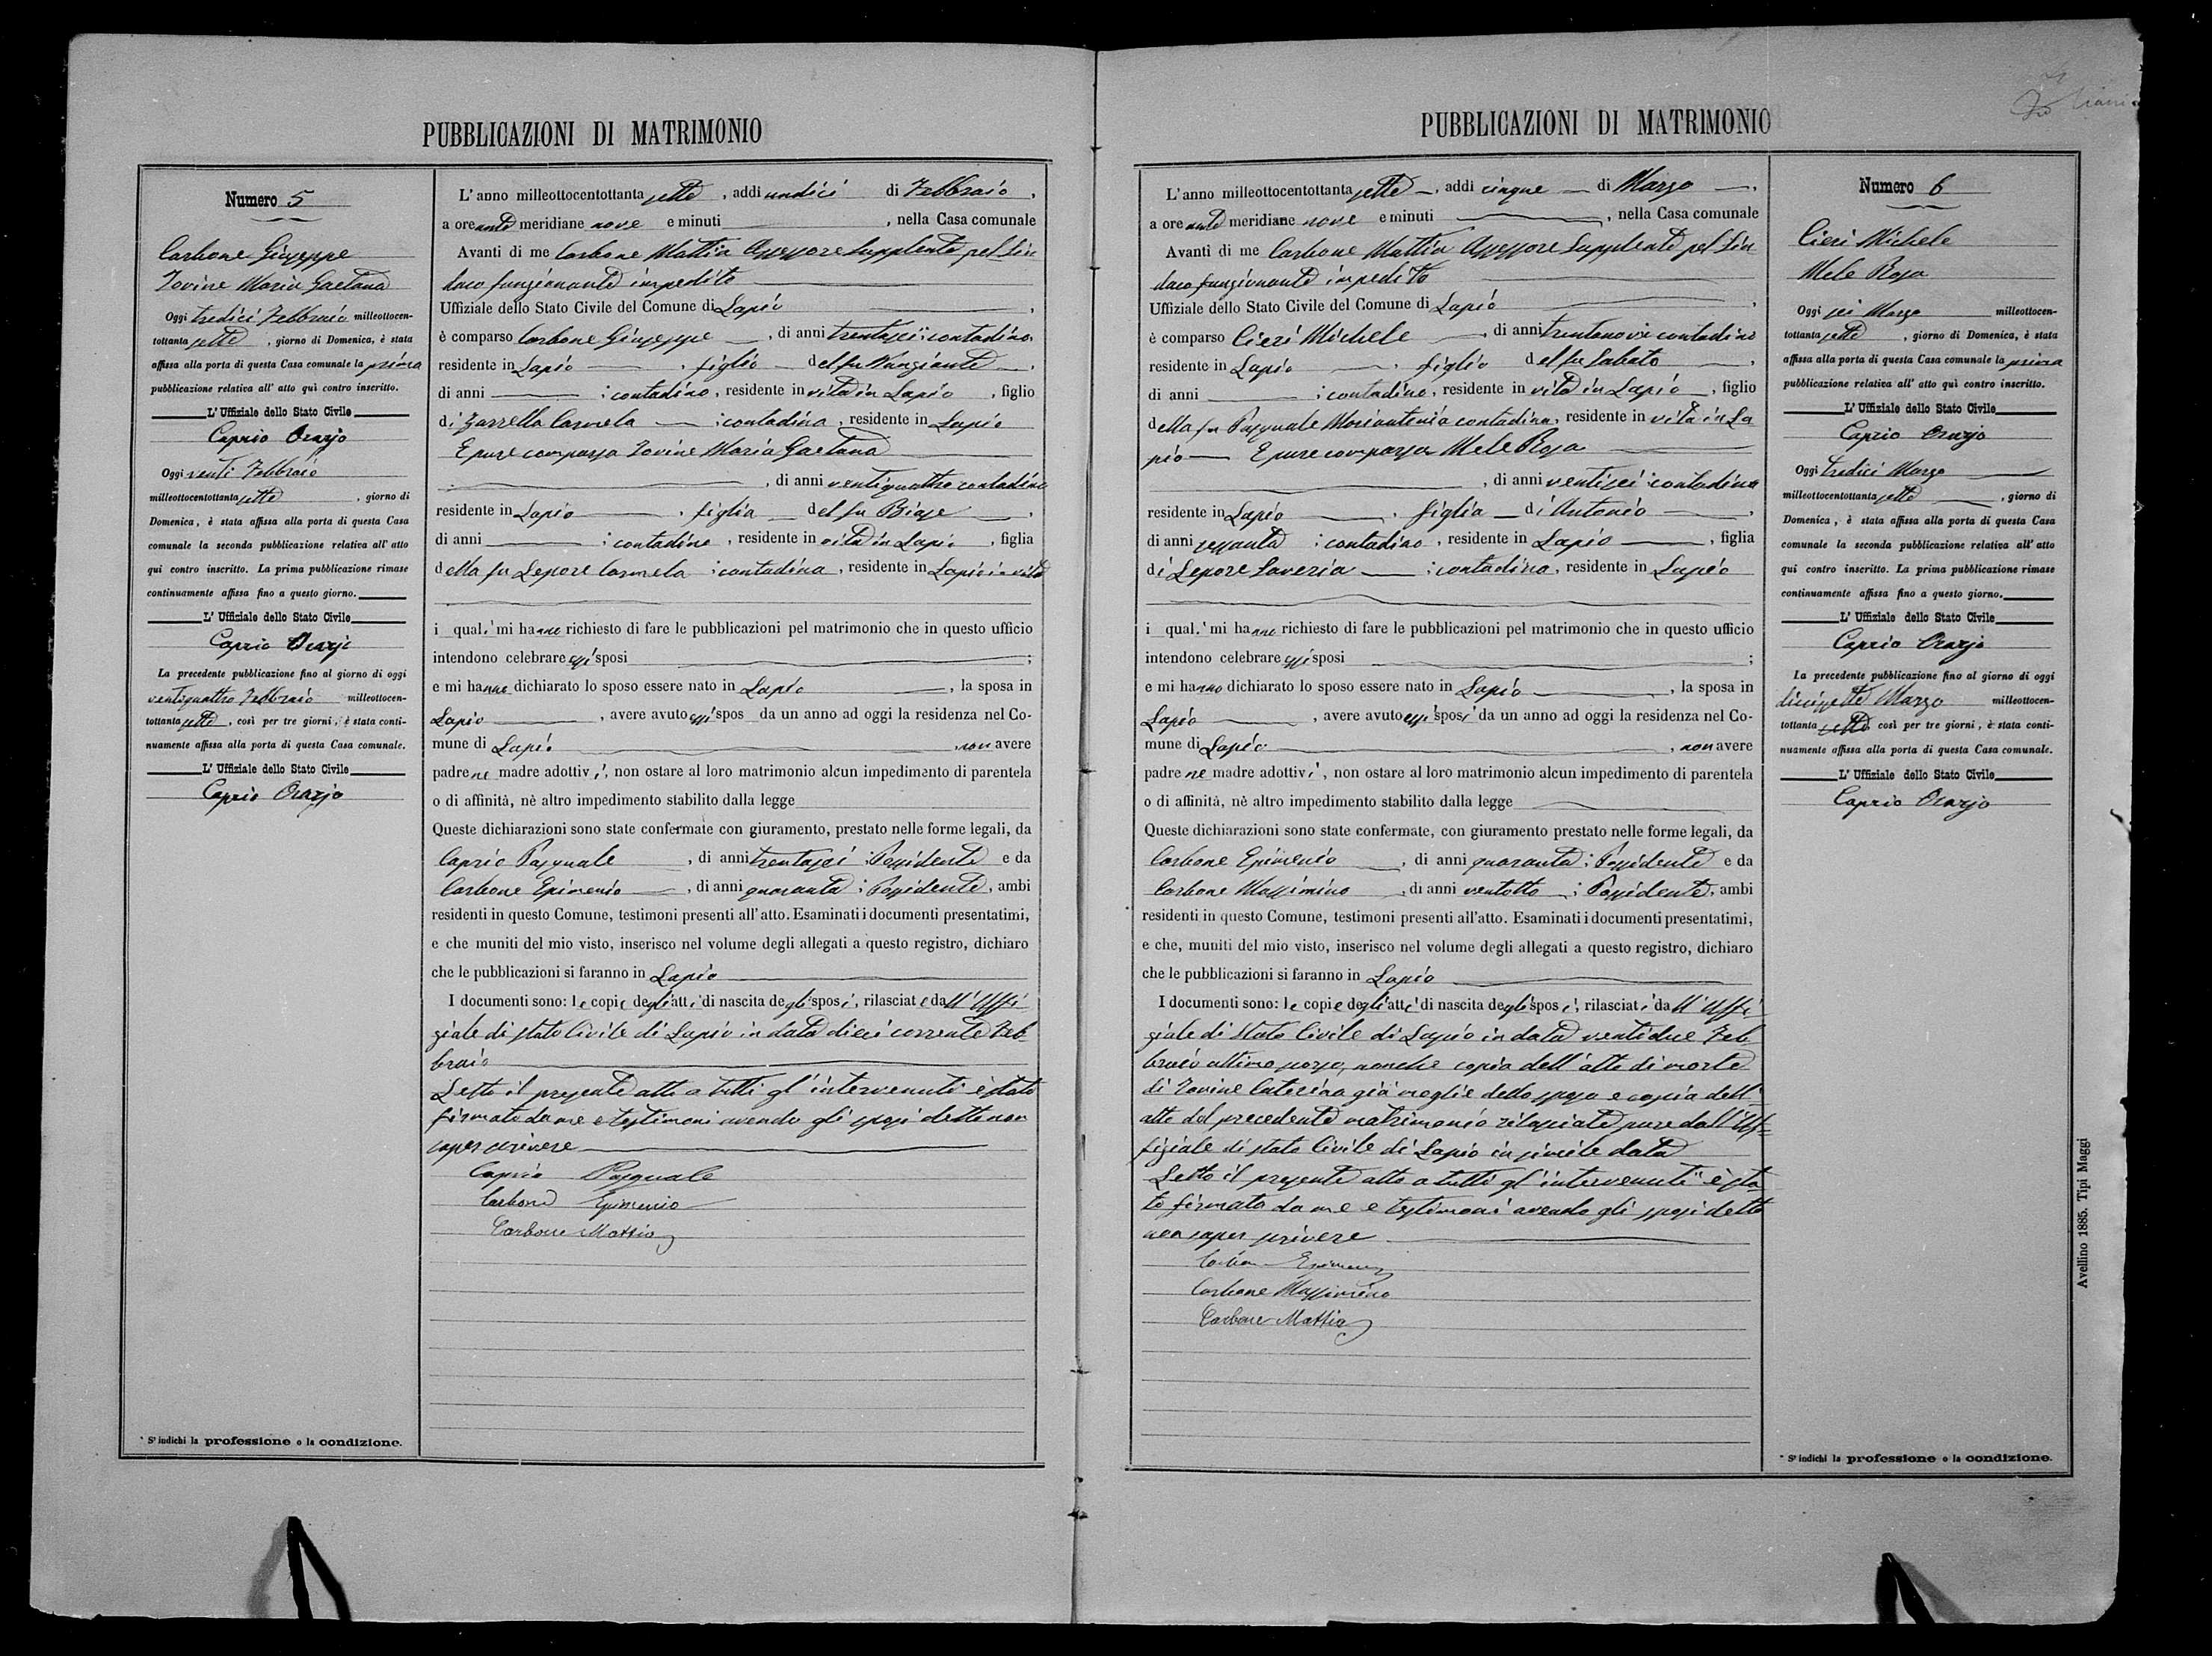 PUBBLICAZIONI DI MATRIMONIO
Numero 5
Carbone Giuseppe
Iovine Maria Gaetana
Oggi tredici Febbraio milleottocen-
tottanta sette, giorno di Domenica, è stata
affissa alla porta di questa Casa comunale la prima
pubblicazione relativa all' atto quì contro inscritto.
L' Uffiziale dello Stato Civile
Caprio Orazio
Oggi venti Febbraio
milleottocentottanta sette, giorno di
Domenica, è stata affissa alla porta di questa Casa
comunale la seconda pubblicazione relativa all' atto
qui contro inscritto. La prima pubblicazione rimase
continuamente affissa fino a questo giorno.
L' Uffiziale dello Stato Civile
Caprio Orazio
La precedente pubblicazione fino al giorno di oggi
ventiquattro Febbraio milleottocen-
tottanta sette, così per tre giorni, è stata conti-
nuamente affissa alla porta di questa Casa comunale.
L' Uffiziale dello Stato Civile
Caprio Orazio
* S' indichi la professione o la condizione.
L' anno milleottocentottanta sette, addi undici di Febbraio,
a ore ante meridiane nove e minuti , nella Casa comunale
Avanti di me Carbone Mattia Assessore Supplente pel Sin
daco funzionante impedito
Uffiziale dello Stato Civile del Comune di Lapio
è comparso Carbone Giuseppe , di anni trentasei contadino
residente in Lapio , figlio del fu Nunziante ,
di anni ; contadino, residente in vita in Lapio , figlio
di Zarrella Carmela ; contadina, residente in Lapio
E pure comparsa Iovine Maria Gaetana
, di anni ventiquattro contadina
residente in Lapio , figlia del fu Biase ,
di anni ; contadino , residente in vita in Lapio , figlia
della fu Lepore Carmela ; contadina , residente in Lapio in vita
i quali mi hanno richiesto di fare le pubblicazioni pel matrimonio che in questo ufficio
intendono celebrare essi sposi ;
e mi hanno dichiarato lo sposo essere nato in Lapio , la sposa in
Lapio , avere avuto essi spos da un anno ad oggi la residenza nel Co-
mune di Lapio , non avere
padre ne madre adottivi, non ostare al loro matrimonio alcun impedimento di parentela
o di affinità, nè altro impedimento stabilito dalla legge
Queste dichiarazioni sono state confermate con giuramento, prestato nelle forme legali, da
Caprio Pasquale , di anni trentasei ; Possidente e da
Carbone Epimenio , di anni quaranta ; Possidente, ambi
residenti in questo Comune, testimoni presenti all' atto. Esaminati i documenti presentatimi,
e che muniti del mio visto, inserisco nel volume degli allegati a questo registro, dichiaro
che le pubblicazioni si faranno in Lapio
I documenti sono: le copie degli atti di nascita degli sposi, rilasciate dall' Uffi
ziale di stato Civile di Lapio in data dieci corrente Feb
braio
Letto il presente atto a tutti gl' intervenuti è stato
firmato da me e testimoni avendo gli sposi detto non
saper scrivere
Caprio Pasquale
Carbone Epimenio
Carbone Mattia
PUBBLICAZIONI DI MATRIMONIO
L' anno milleottocentottanta sette , addi cinque di Marzo ,
a ore ante meridiane nove e minuti , nella Casa comunale
Avanti di me Carbone Mattia Assessore Supplente pel Sin
daco funzionante impedito
Uffiziale dello Stato Civile del Comune di Lapio ,
è comparso Cieri Michele , di anni trentanove contadino
residente in Lapio , figlio del fu Sabato ,
di anni ; contadino, residente in vita in Lapio , figlio
della fu Pasquale Mariantonia contadina, residente in vita in La
pio E pure comparsa Mele Rosa
, di anni ventisei contadina
residente in Lapio , figlia di Antonio ,
di anni sessanta ; contadino , residente in Lapio , figlia
di Lepore Saveria ; contadina, residente in Lapio
i quali mi hanno richiesto di fare le pubblicazioni pel matrimonio che in questo ufficio
intendono celebrare essi sposi ;
e mi hanno dichiarato lo sposo essere nato in Lapio , la sposa in
Lapio , avere avuto essi sposi da un anno ad oggi la residenza nel Co-
mune di Lapio , non avere
padre ne madre adottivi, non ostare al loro matrimonio alcun impedimento di parentela
o di affinità, nè altro impedimento stabilito dalla legge
Queste dichiarazioni sono state confermate, con giuramento prestato nelle forme legali, da
Carbone Epimenio , di anni quaranta ; Possidente e da
Carbone Massimino , di anni ventotto ; Possidente, ambi
residenti in questo Comune, testimoni presenti all'atto. Esaminati i documenti presentatimi,
e che, muniti del mio visto, inserisco nel volume degli allegati a questo registro, dichiaro
che le pubblicazioni si faranno in Lapio
I documenti sono: le copie degli atti di nascita degli sposi, rilasciati dall' Uffi
ziale di stato Civile di Lapio in data ventidue Feb
braio ultimo scorso, nonche copia dell' atto di morte
di Iovine Caterina già moglie dello sposo e copia dell'
atto del precedente matrimonio rilasciate pure dall' Uf=
fiziale di stato Civile di Lapio in simile data
Letto il presente atto a tutti gl' intervenuti è sta
to firmato da me e testimoni avendo gli sposi detto
non saper scrivere
Carbone Epimenio
Carbone Massimino
Carbone Mattia
Numero 6
Cieri Michele
Mele Rosa
Oggi sei Marzo milleottocen-
tottanta sette , giorno di Domenica, è stata
affissa alla porta di questa Casa comunale la prima
pubblicazione relativa all' atto quì contro inscritto.
L' Uffiziale dello Stato Civile
Caprio Orazio
Oggi tredici Marzo
milleottocentottanta sette , giorno di
Domenica, è stata affissa alla porta di questa Casa
comunale la seconda pubblicazione relativa all' atto
qui contro inscritto. La prima pubblicazione rimase
continuamente affissa fino a questo giorno.
L' Uffiziale dello Stato Civile
Caprio Orazio
La precedente pubblicazione fino al giorno di oggi
diciassette Marzo milleottocen-
tottanta sette così per tre giorni, è stata conti-
nuamente affissa alla porta di questa Casa comunale.
L' Uffiziale dello Stato Civile
Caprio Orazio
* S' indichi la professione o la condizione.
Avellino 1885. Tipi Maggi